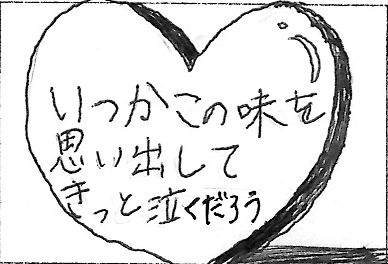 いつかこの味を
思い出して
きっと泣くだろう